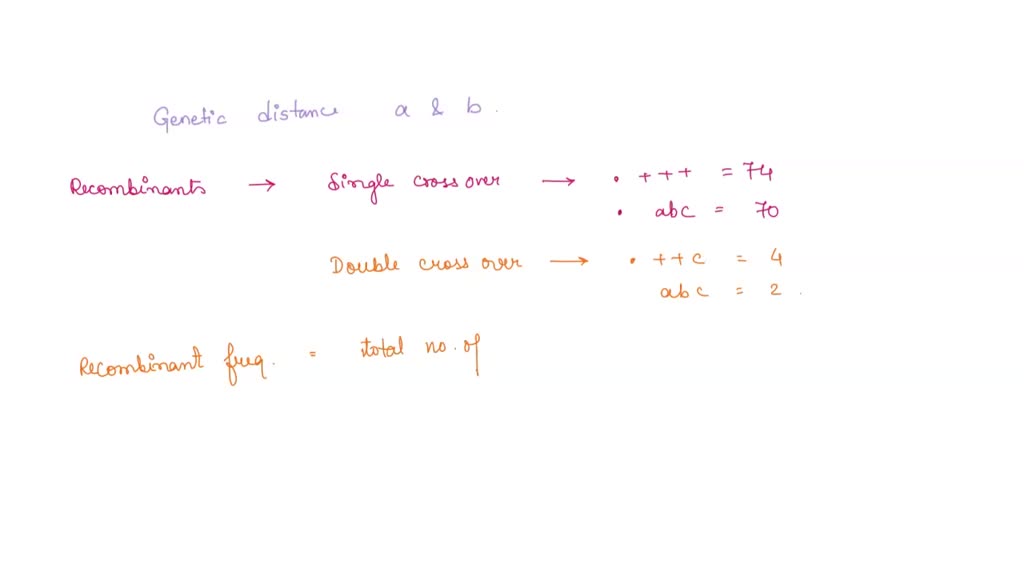 Genetic distance a & b.
Recombinants → Single cross over → • +++ = 74
• abc = 70
Double cross over → • ++c = 4
abc = 2.
Recombinant freq. = total no. of